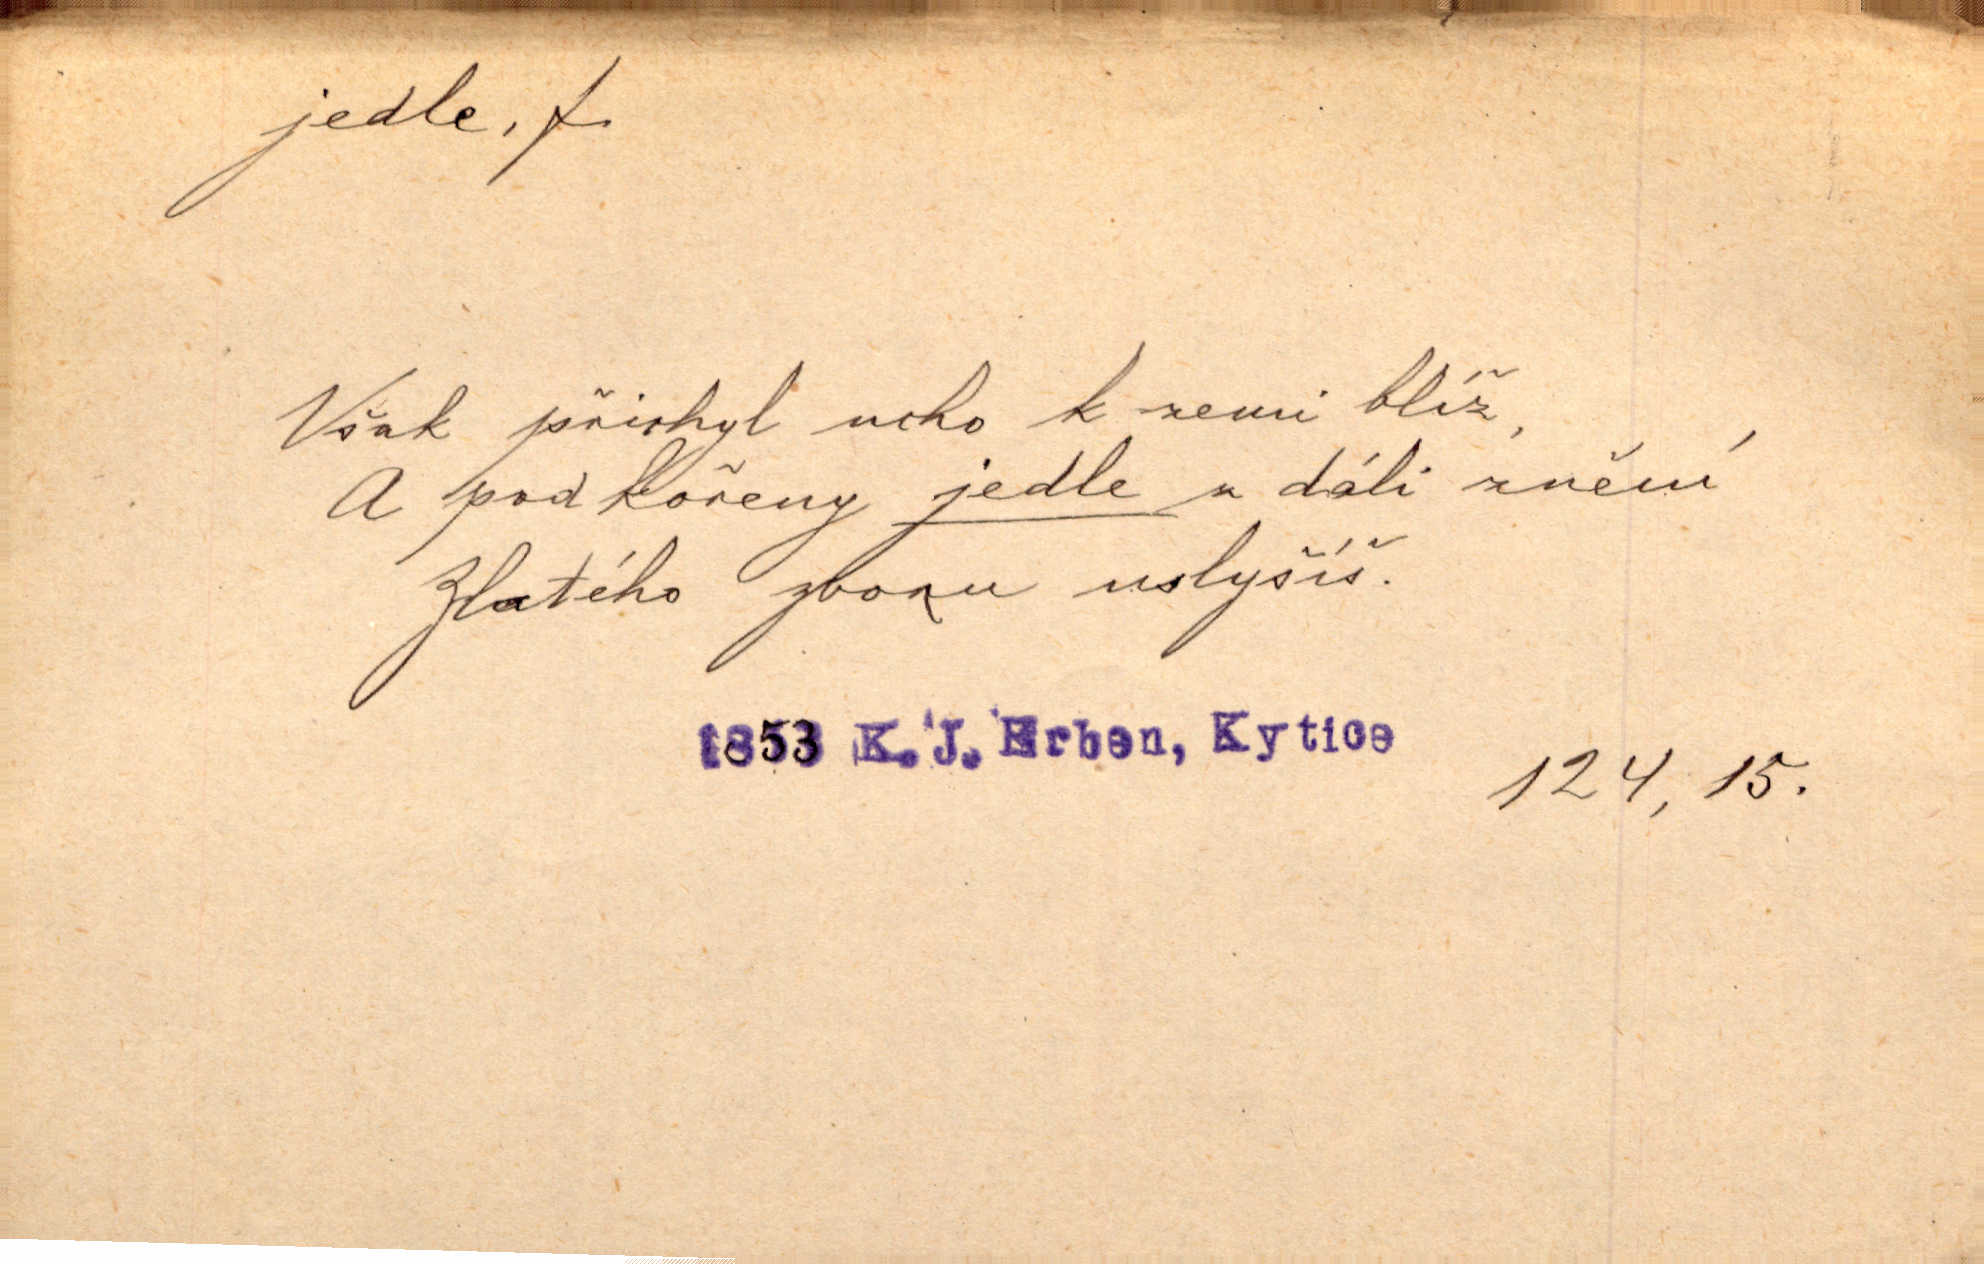 jedle, f.
Však přichyl ucho k zemi blíž,
A pod kořeny jedle z dáli znění
Zlatého zvonu uslyšíš.
1853 K. J. Erben, Kytice
124, 15.